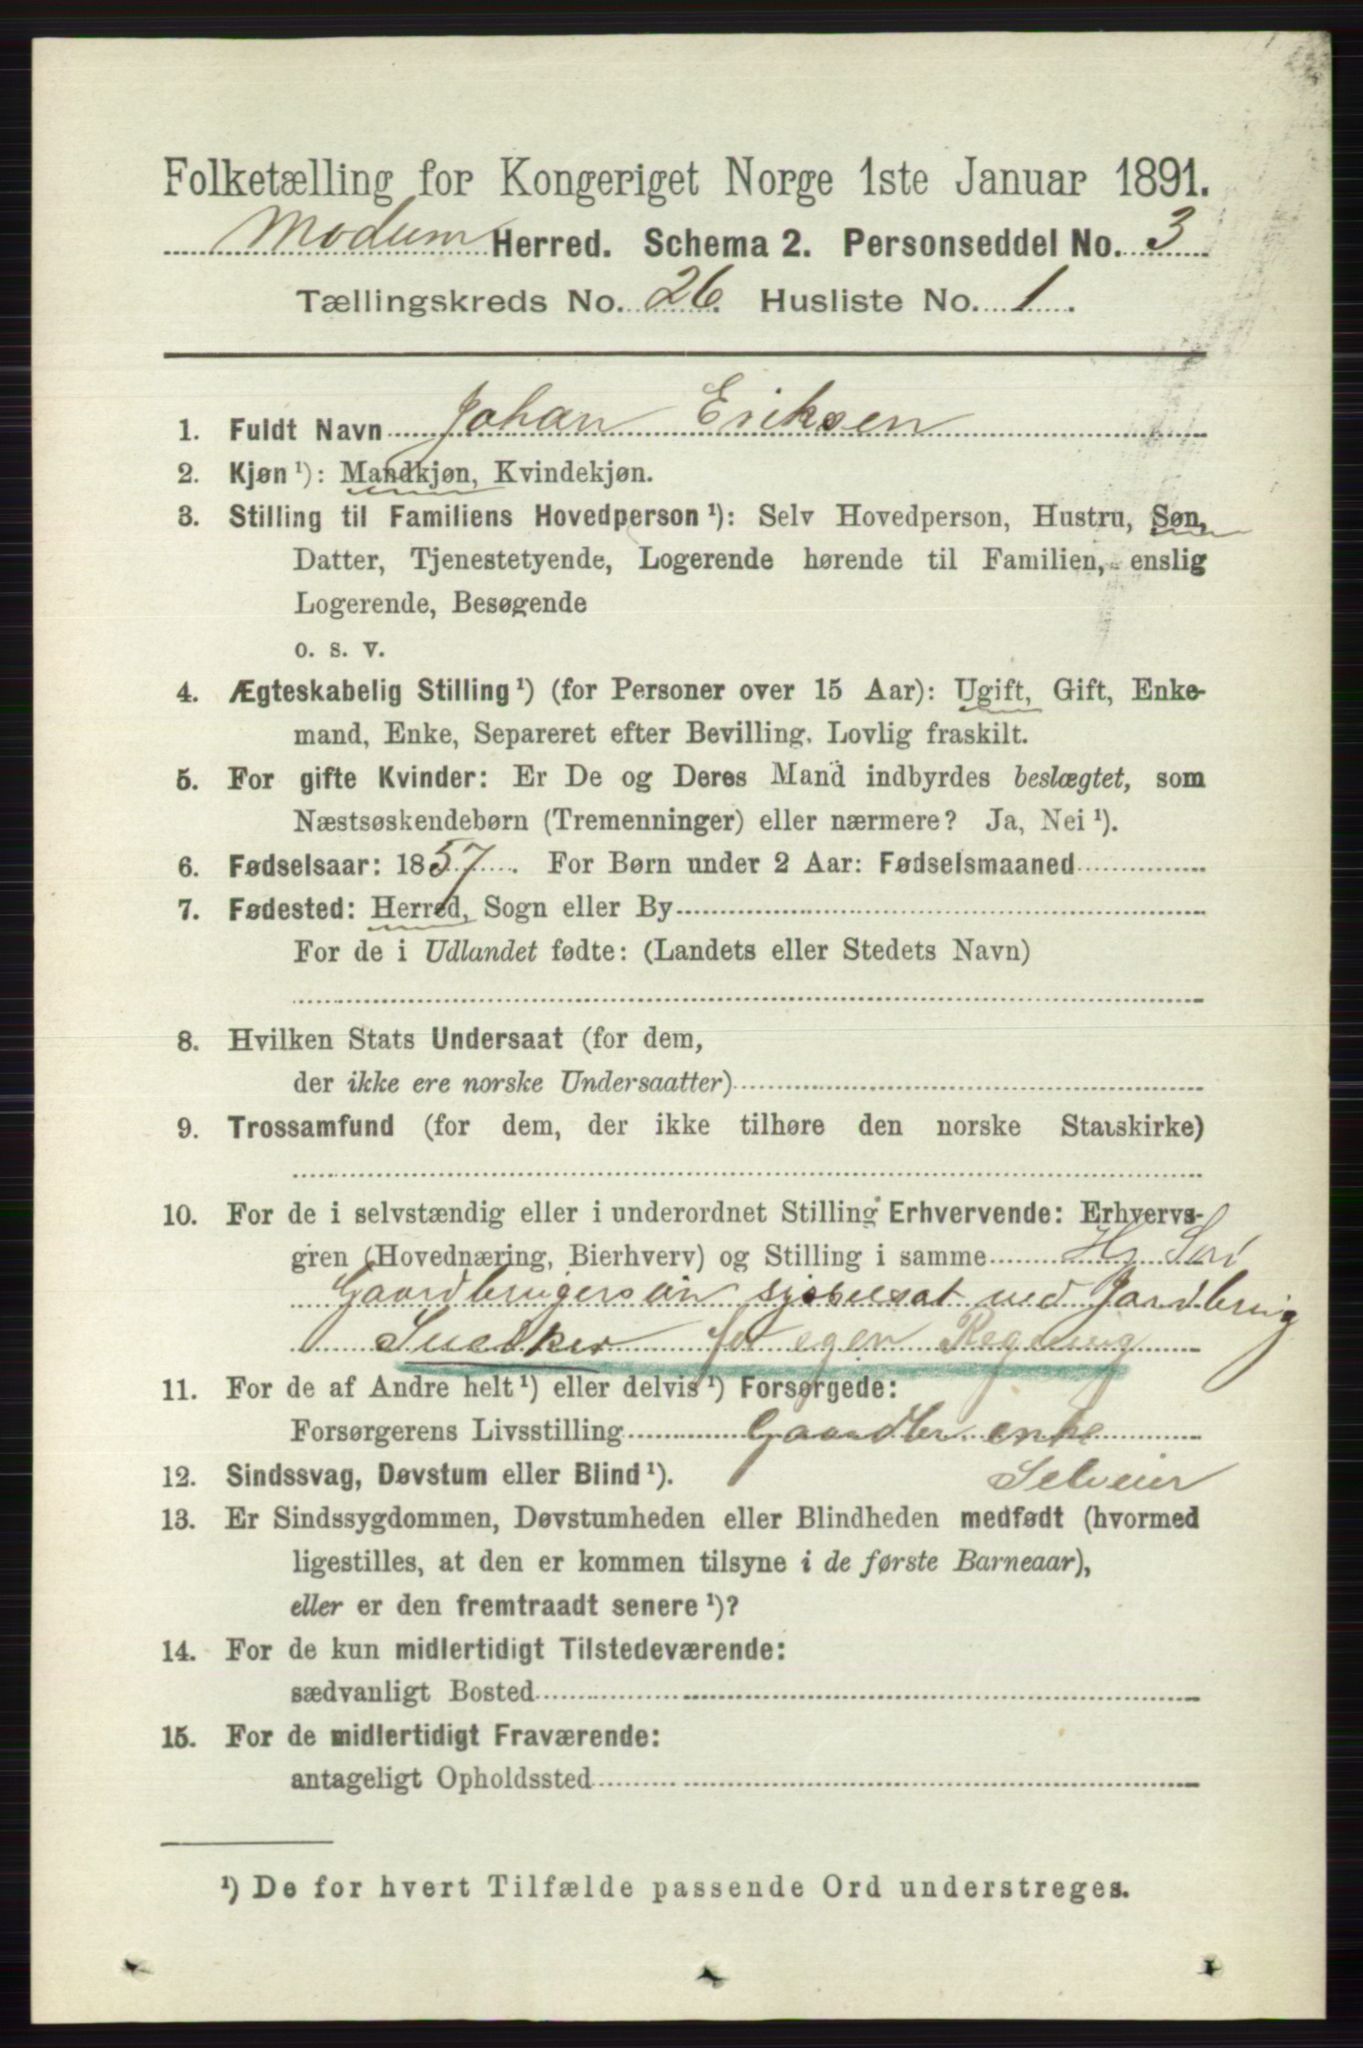 Folketælling for Kongeriget Norge 1ste Januar 1891.
Modum Herred. Schema 2. Personseddel No. 3
Tællingskreds No. 26. Husliste No. 1.
1. Fuldt Navn Johan Eriksen
2. Kjøn ¹): Mandkjøn, Kvindekjøn.
3. Stilling til Familiens Hovedperson ¹): Selv Hovedperson, Hustru, Søn,
Datter, Tjenestetyende, Logerende hørende til Familien, enslig
Logerende, Besøgende
o. s. v.
4. Ægteskabelig Stilling ¹) (for Personer over 15 Aar): Ugift, Gift, Enke-
mand, Enke, Separeret efter Bevilling. Lovlig fraskilt.
5. For gifte Kvinder: Er De og Deres Mand indbyrdes beslægtet, som
Næstsøskendebørn (Tremenninger) eller nærmere? Ja, Nei ¹).
6. Fødselsaar: 1857. For Børn under 2 Aar: Fødselsmaaned
7. Fødested: Herred, Sogn eller By
For de i Udlandet fødte: (Landets eller Stedets Navn)
8. Hvilken Stats Undersaat (for dem,
der ikke ere norske Undersaatter)
9. Trossamfund (for dem, der ikke tilhøre den norske Statskirke)
10. For de i selvstændig eller i underordnet Stilling Erhvervende: Erhvervs-
gren (Hovednæring, Bierhverv) og Stilling i samme
Gaardbrugersøn sysselsat med Jordbrug
Snedker for egen Regning
11. For de af Andre helt ¹) eller delvis ¹) Forsørgede:
Forsørgerens Livsstilling Gaardbr. enke
12. Sindssvag, Døvstum eller Blind ¹). Selveier
13. Er Sindssygdommen, Døvstumheden eller Blindheden medfødt (hvormed
ligestilles, at den er kommen tilsyne i de første Barneaar),
eller er den fremtraadt senere ¹)?
14. For de kun midlertidigt Tilstedeværende:
sædvanligt Bosted
15. For de midlertidigt Fraværende:
antageligt Opholdssted
¹) De for hvert Tilfælde passende Ord understreges.